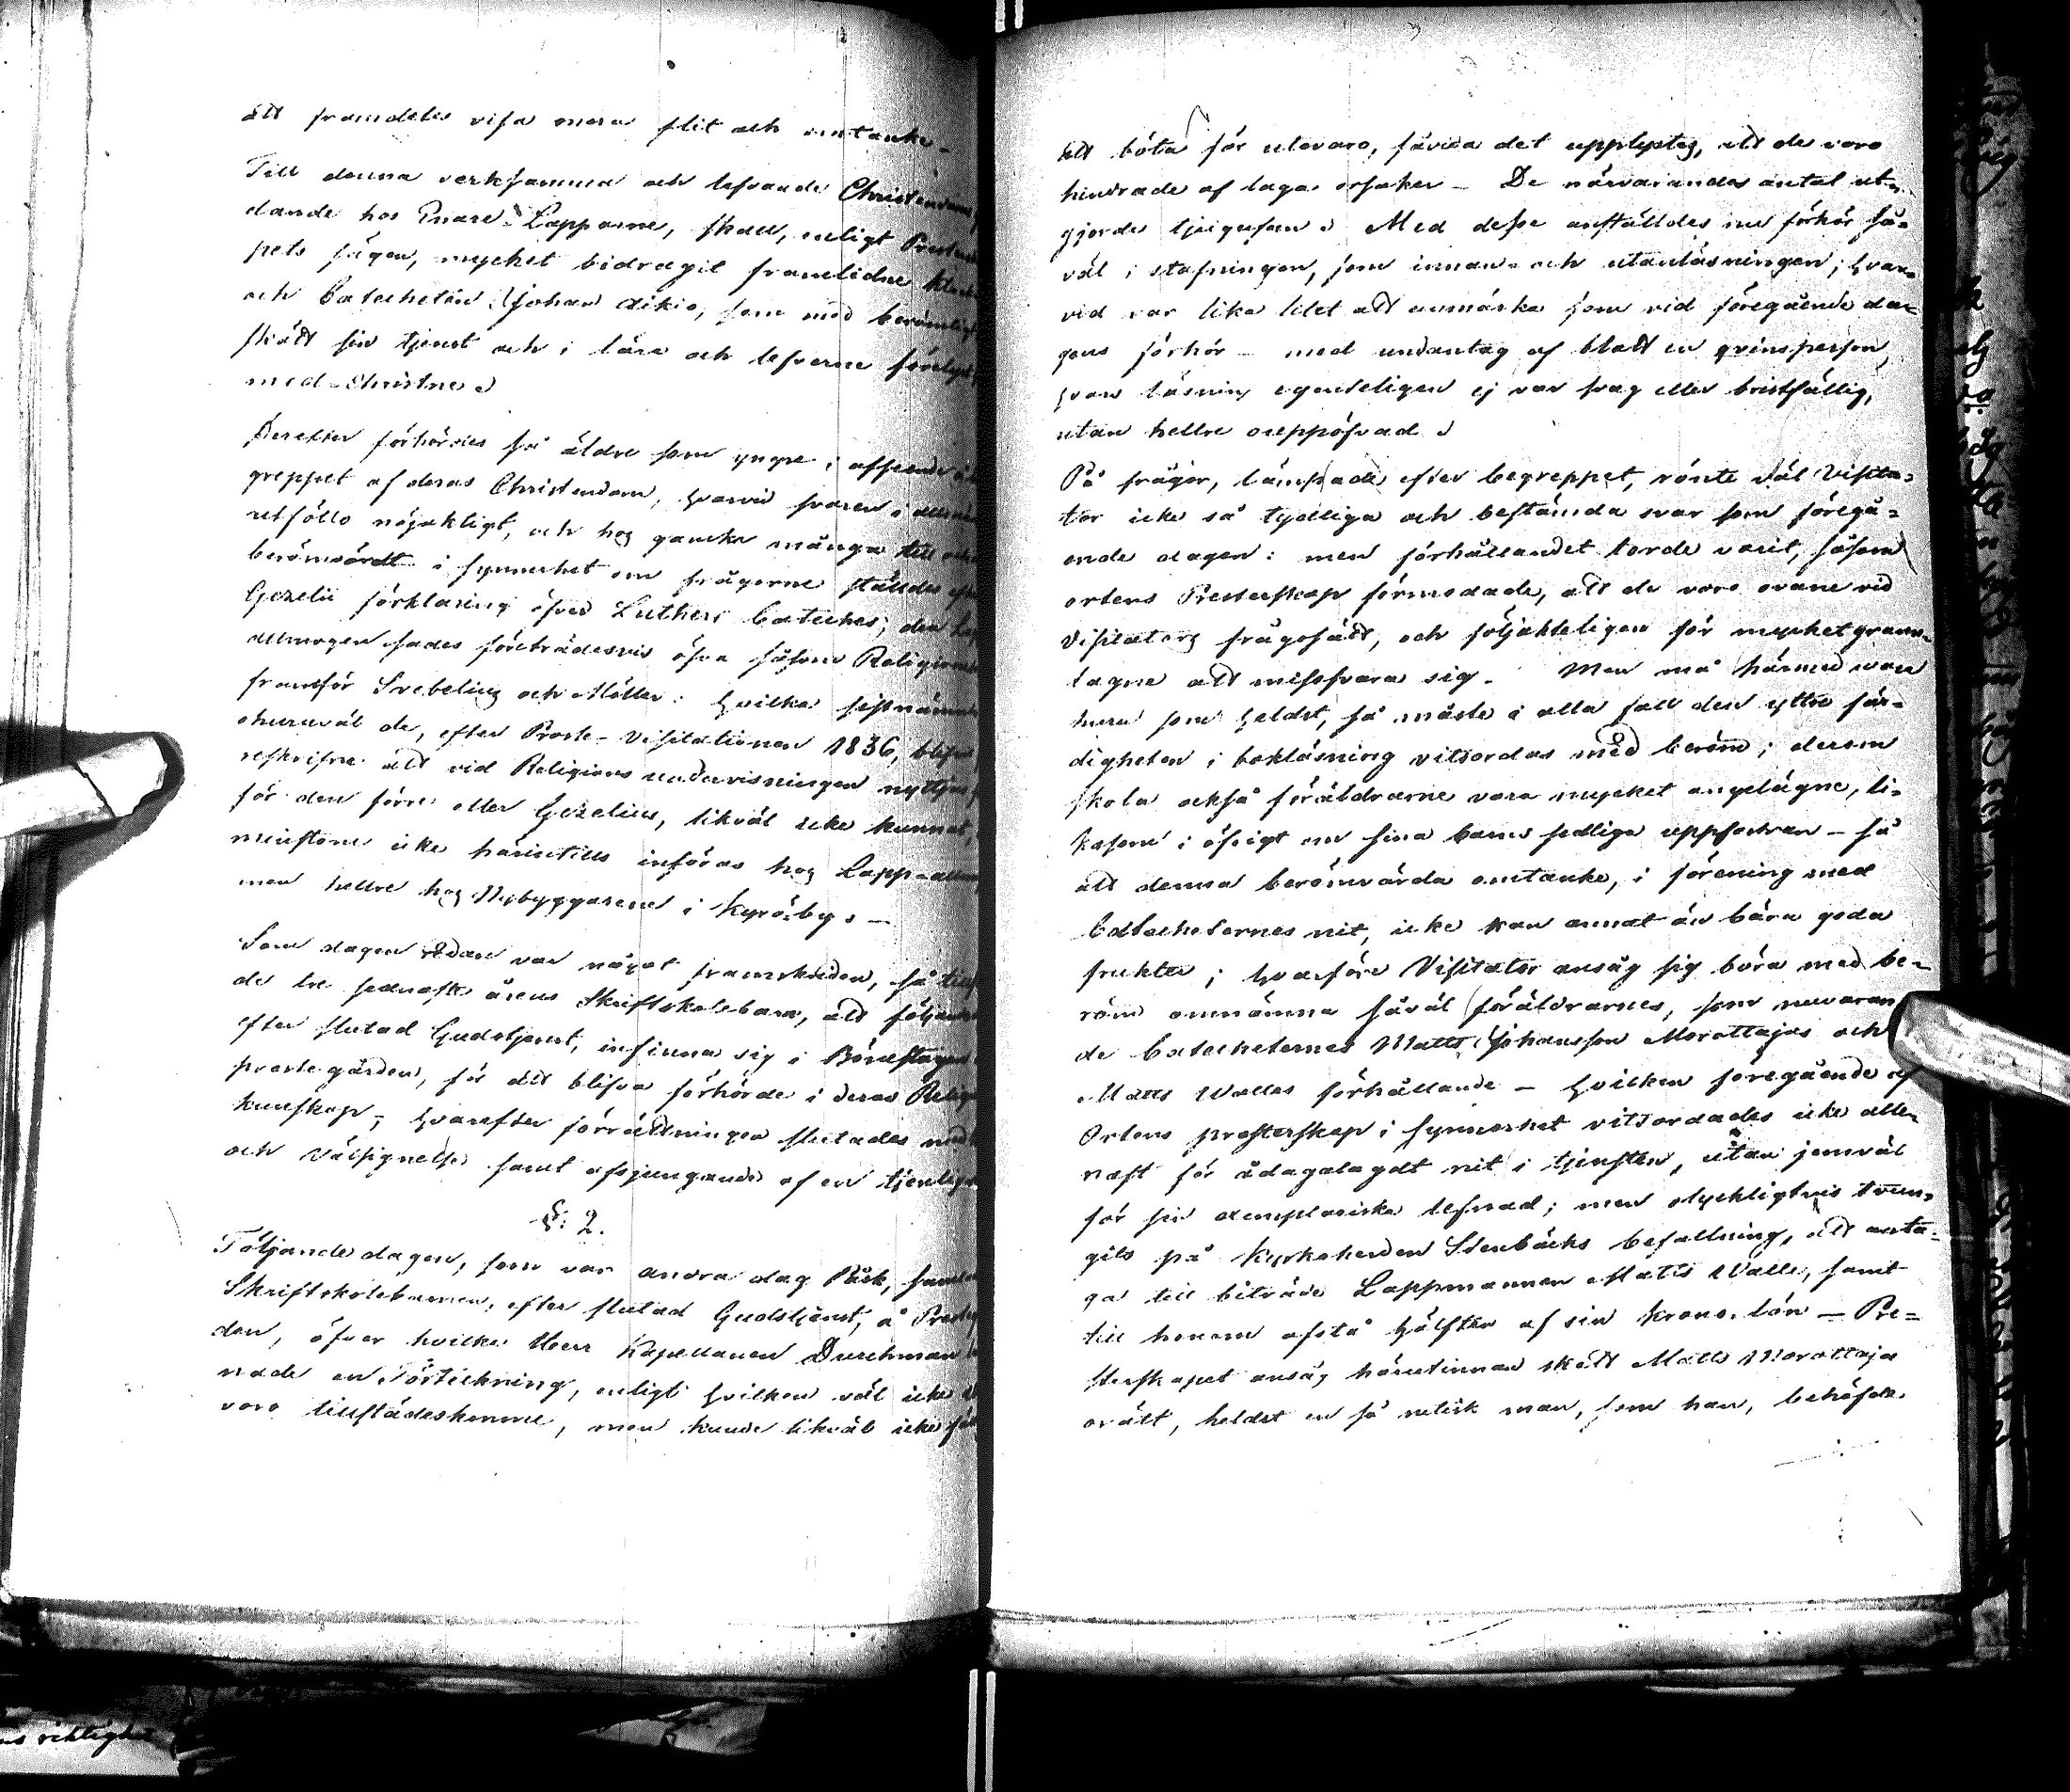 att framdeles visa mera flit och omtanke.
Till denna verksamma och lefvande Christendom
dande hos Enare-Lapparne, skall, enligt Prester
pets sägen, mycket bidragit framlidne Klock
och Catecheten Johan Aikio, som med berömligt
skött sin tjenst och i lära och lefverne förelyst
med-Christne.
Derefter förhördes så äldre som yngre i afseende å
greppet af deras Christendom, hvarvid svaren i allmän
utföllo nöjaktigt, och hos ganska många till och
berömvärdt i synnerhet om frågorne ställdes eft
Gezelii förklaring öfver Lutheri Cateches; den
allmogen sades företrädesvis öfva såsom Religions
framför Svebelius och Möller: hvilka sistnämn
ehuruväl de, efter Prosts-Visitationen 1836, blifvit
reskrifne att vid Religions undervisningen nyttjas
för den förre eller Gezelius, likväl icke kunnat,
minstone icke härintills införas hos Lapp-allm
men hellre hos Nybyggarene i Kyröby. —
Som dagen redan var något framskriden, så till
de tre sednaste årens Skriftskolebarn, att följande
efter slutad Gudstjenst, infinna sig i Bönestugan
prestegården, för att blifva förhörde i deras Relig
kunskap; hvarefter förrättningen slutades med
och Välsignelse samt afsjungande af en tjenlig
§: 2.
Följande dagen, som var andra dag Påsk, saml
Skriftskolebarnen, efter slutad Gudstjenst, å Prestg
den, öfver hvilka Herr Kapellanen Durchman
nade en Förteckning, enligt hvilken väl icke
voro tillstädeskomne, men kunde likväl icke
att böta för utevaro, såvida det upplystes, att de voro
hindrade af laga orsaker – De närvarandes antal ut-
gjorde tjugufem. Med desse anställdes nu förhör så-
väl i stafningen, som innan- och utanläsningen; hvar-
vid var lika litet att anmärka som vid föregående da-
gens förhör – med undantag af blott en qvinsperson,
hvars läsning egenteligen ej var svag eller bristfällig,
utan hellre oreppöfvad.
På frågor, lämpade efter begreppet, rönte väl Visita-
tor icke så tydliga och bestämda svar som föregå-
ende dagen: men förhållandet torde varit, såsom
ortens Presterskap förmodade, att de voro ovane vid
Visitators frågosätt, och följakteligen för mycket grann-
lagne att misssvara sig. Men må härmed vara
huru som heldst, så måste i alla fall den yttre fär-
digheten i bokläsning vitsordas med beröm; derom
skola också föräldrarne vara mycket angelägne, li-
kasom i öfrigt om sina barns sedliga uppfostran – så
att denna berömvärda omtanke, i förening med
Catecheternes nit, icke kan annat än bära goda
frukter; hvarföre Visitator ansåg sig böra med be-
röm omnämna såväl föräldrarnes, som nuvaran
de Catecheternes Matts Johansson Morottajas och
Matts Walles förhållande – hvilken föregående af
Ortens presterskap i synnerhet vitsordades icke alle-
nast för ådagalagdt nit i tjensten, utan jemväl
för sin exemplariska lefnad; men olyckligtvis tvun-
gits på Kyrkoherden Stenbäcks befallning, att anta-
ga till biträde Lappmannen Matts Walle, samt
till honom afstå hälften af sin krono-lön — Pre-
sterskapet ansåg härutinnan skett Matts Morottaja
orätt, heldst en så nitisk man, som han, behöfde